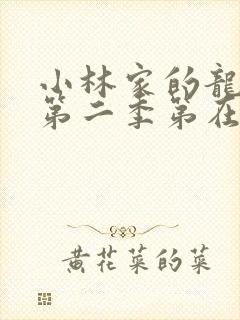 小林家的龍
第二季第在
黄花菜的菜